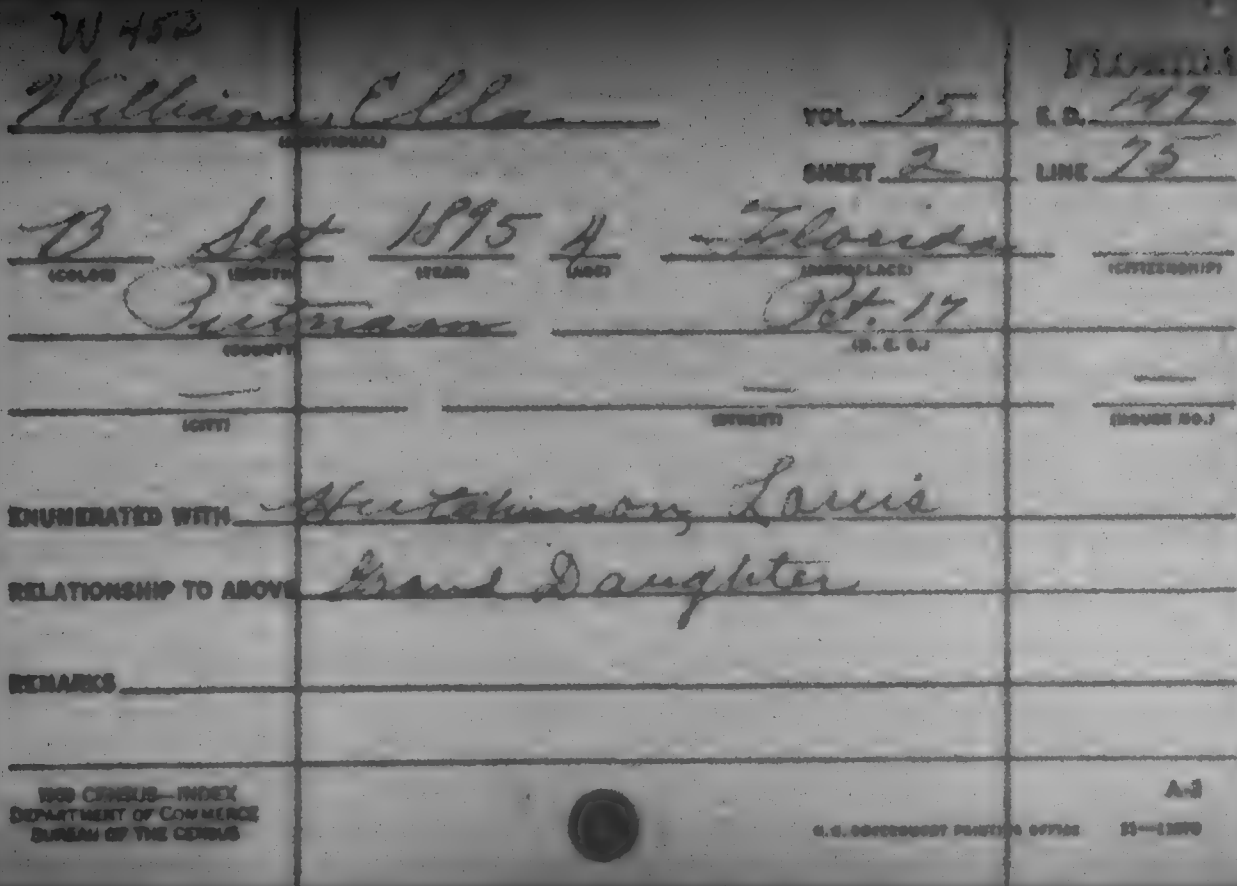 W 452
Williams, Ella VOL. 15 E. D. 149
(INDIVIDUAL)
SHEET 2 LINE 75
B Sept 1895 4 Florida
(COLOR) (MONTH) (YEAR) (AGE) (BIRTHPLACE) (CITIZENSHIP)
Putnam Pct. 17
(COUNTY) (M. C. D.)
— — —
(CITY) (STREET) (HOUSE NO.)
ENUMERATED WITH Hutchinson, Louis
RELATIONSHIP TO ABOVE Grand Daughter
REMARKS
1900 CENSUS—INDEX A-3
DEPARTMENT OF COMMERCE
BUREAU OF THE CENSUS U.S. GOVERNMENT PRINTING OFFICE